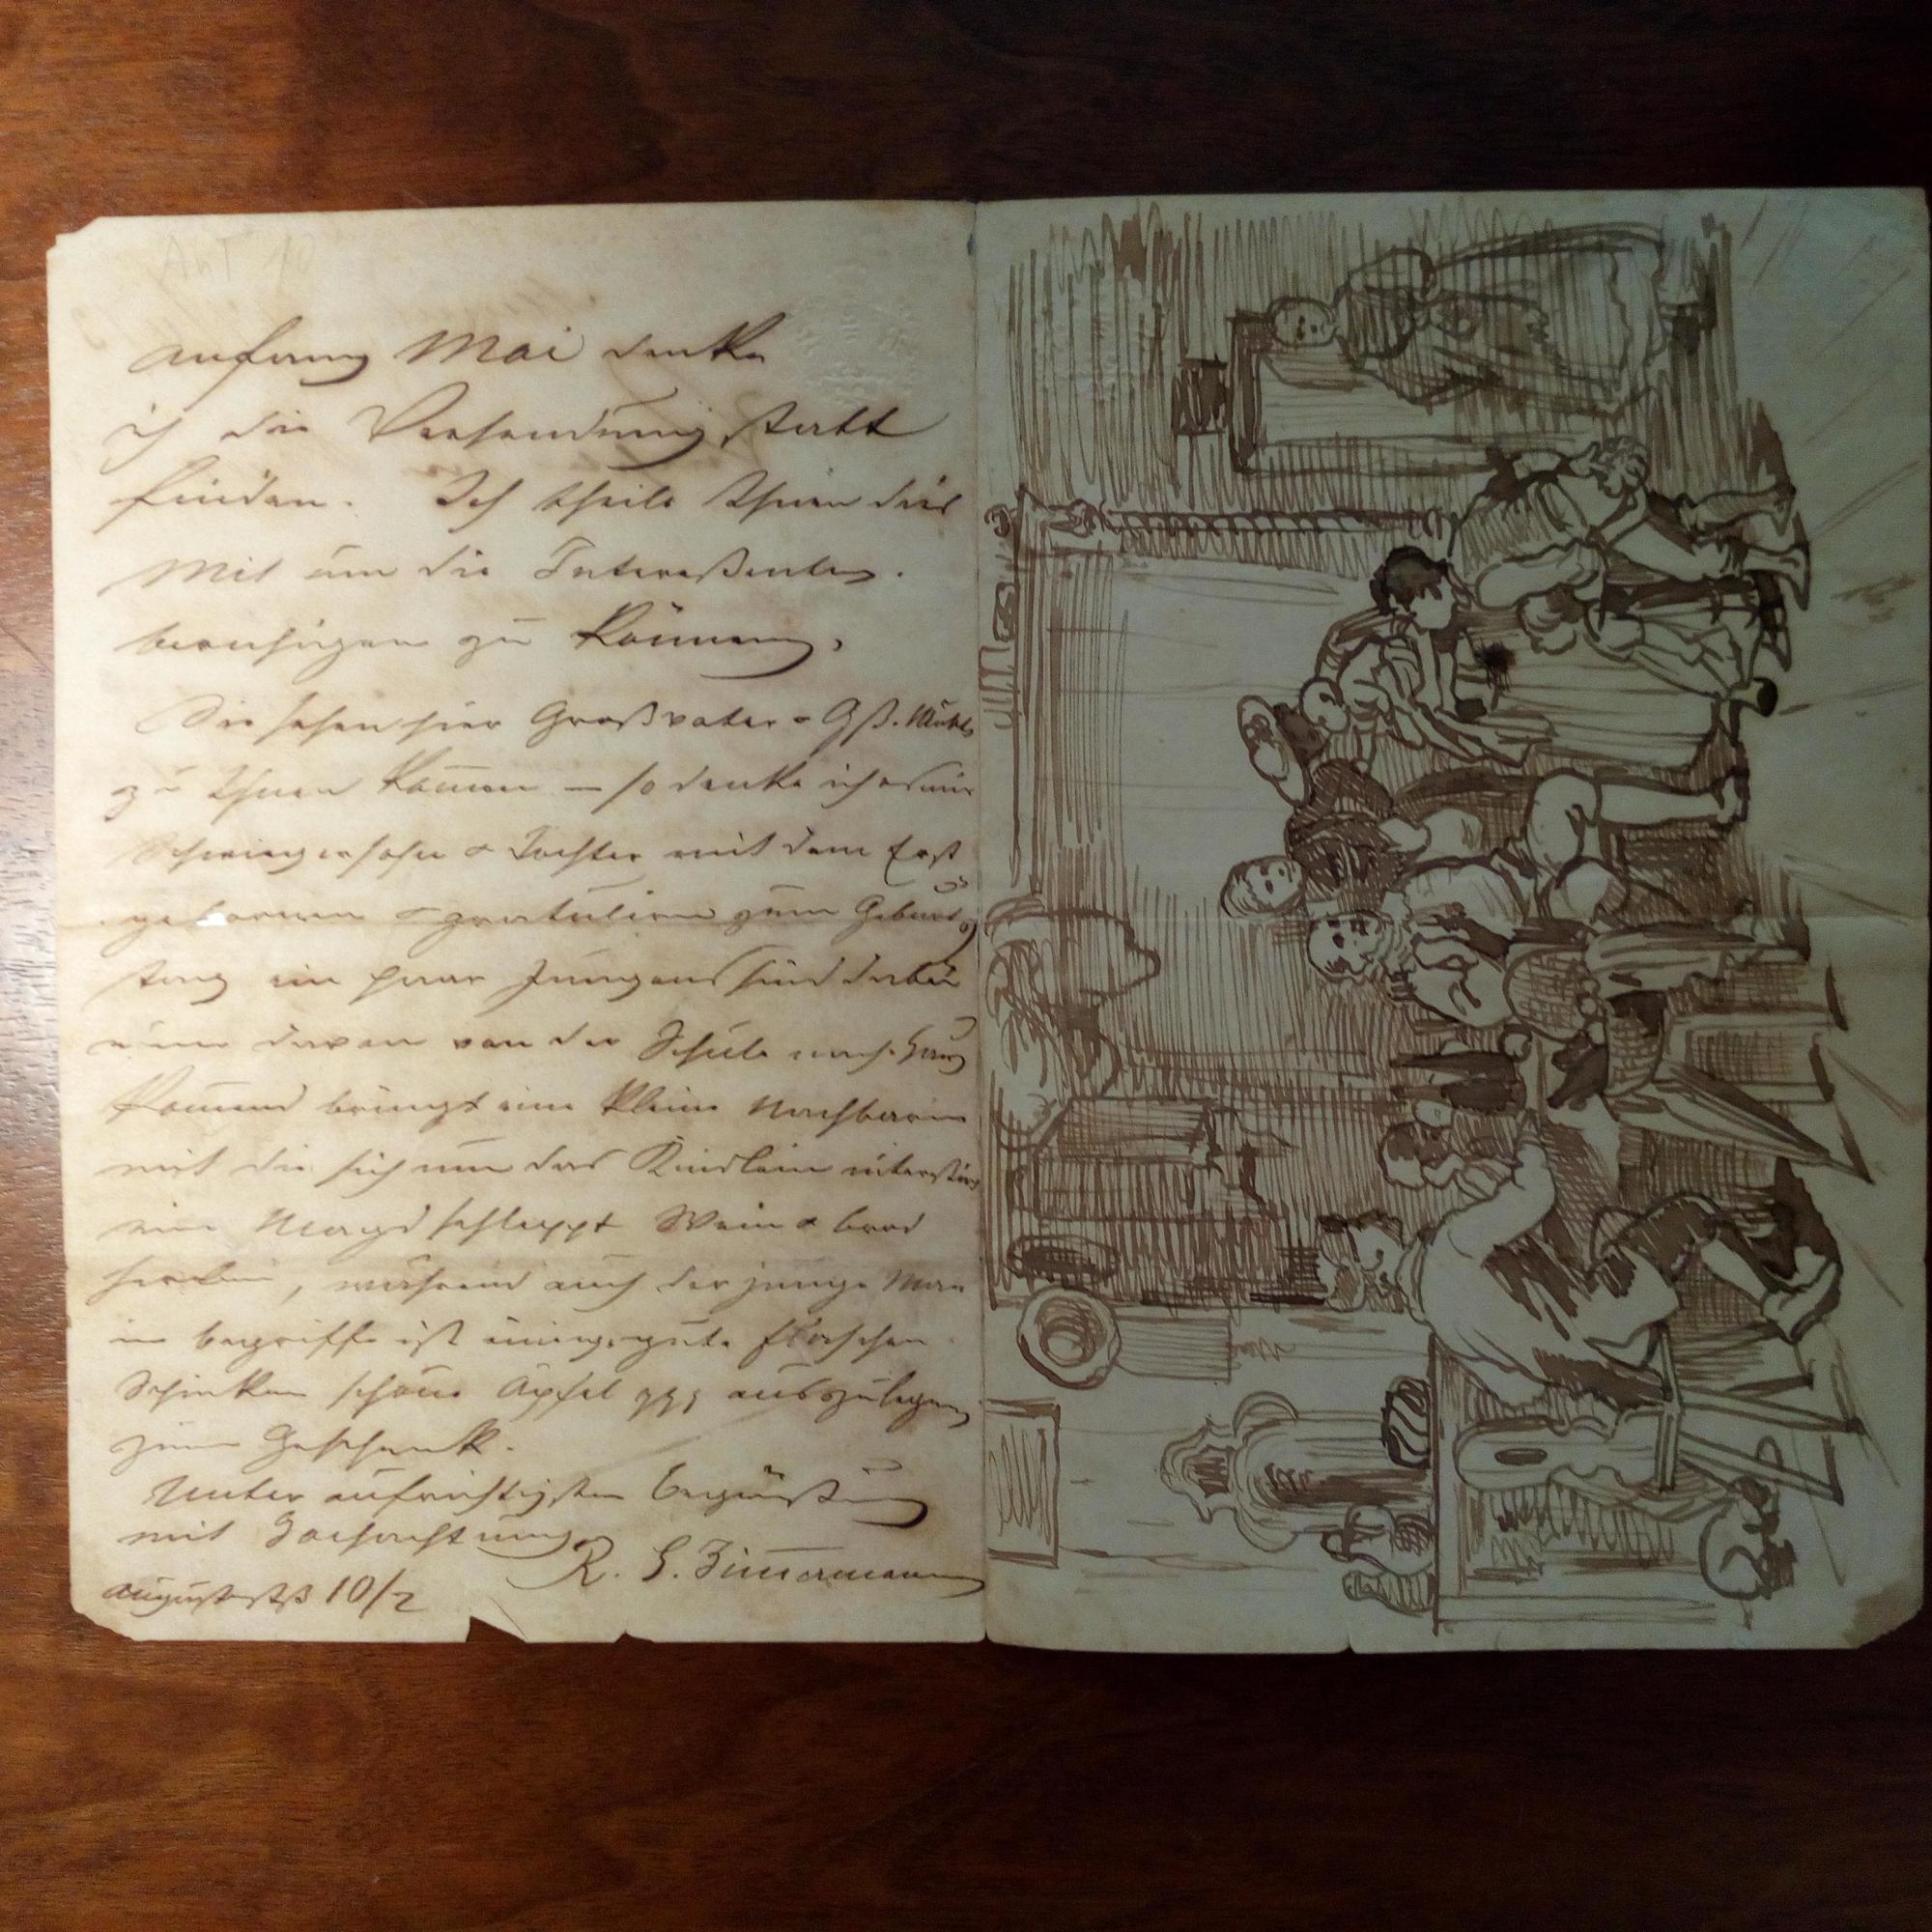 Anfang Mai denke
ich die Versendung statt
finden. Ich theile Ihnen dies
mit um die Intereßenten
beruhigen zu können.
Sie sehen hier Großvater & Gß. Mutter
zu Ihnen kom̄en – so denke ich es mir
Schwiegersohn & Tochter mit dem Erst
gebornen & gratuliren zum Geburts
tag ein paar Jungens sind dabei
einer davon von der Schule nach Haus
kom̄end bringt eine kleine Nachbarin
mit die sich um das Kindlein
eine Magd schleppt Wein & Brod
herbei, während auch der junge Man
im begriffe ist einige gute Flaschen
Schinken schöne Äpfel auszulegen
zum Geschenk.
Unter aufrichtigster Begrüßung
mit Hochachtung
R. S. Zim̄ermann
10/2